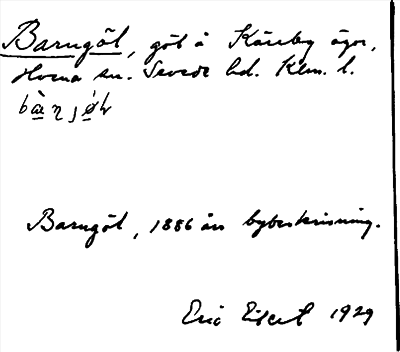 Barngöl, göl å Kåreby ägor,
Hvena sn. Sevede hd. Klm. l.
Barngöl, 1886 års bybeskrivning.
Eric Elfert 1929